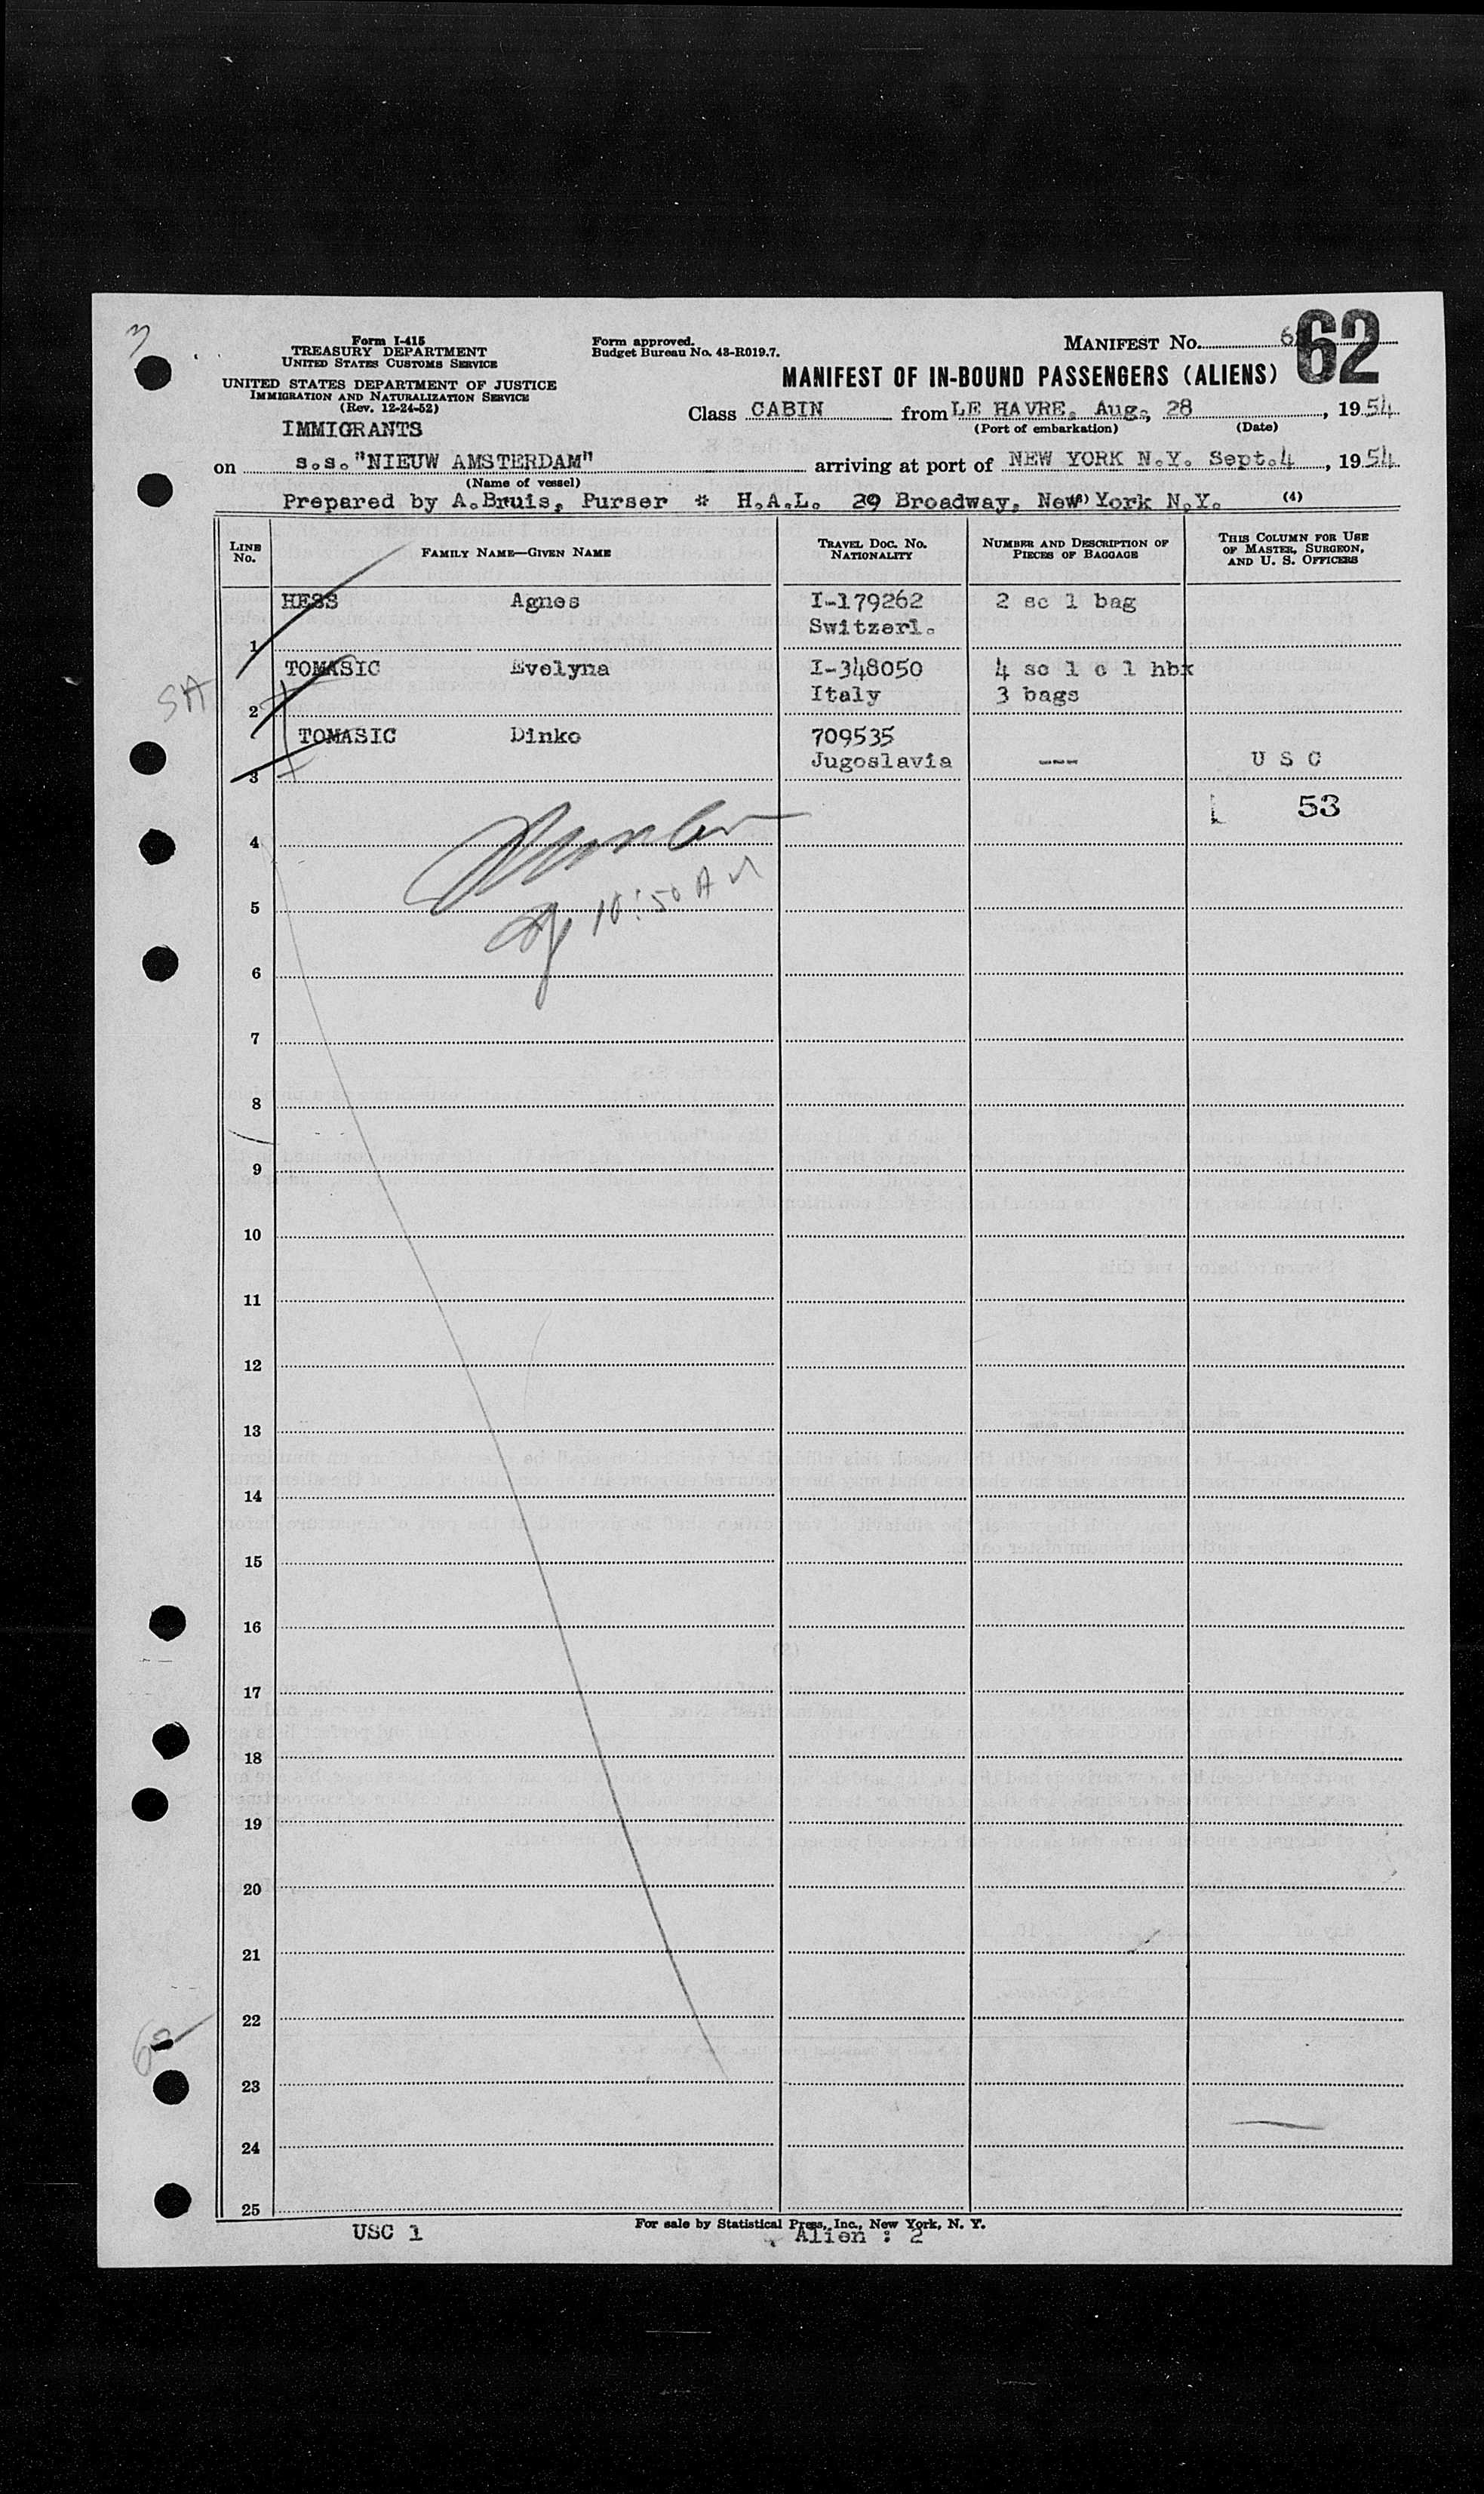 3
Form I-415
TREASURY DEPARTMENT
UNITED STATES CUSTOMS SERVICE
UNITED STATES DEPARTMENT OF JUSTICE
IMMIGRATION AND NATURALIZATION SERVICE
(Rev. 12-24-52)
IMMIGRANTS
Form approved.
Budget Bureau No. 43-R019.7.
MANIFEST No. 62
MANIFEST OF IN-BOUND PASSENGERS (ALIENS)
Class CABIN from LE HAVRE, Aug., 28, 1954
(Port of embarkation) (Date)
on s.s."NIEUW AMSTERDAM" arriving at port of NEW YORK N.Y. Sept.4, 1954
(Name of vessel)
Prepared by A.Bruis, Purser * H.A.L. 29 Broadway, New York N.Y. (4)
LINE No. FAMILY NAME—GIVEN NAME TRAVEL DOC. NO. NATIONALITY NUMBER AND DESCRIPTION OF PIECES OF BAGGAGE THIS COLUMN FOR USE OF MASTER, SURGEON, AND U. S. OFFICERS
HESS Agnes I-179262 2 sc 1 bag
1 Switzerl.
TOMASIC Evelyna I-348050 4 sc 1 c 1 hbx
SA
2 Italy 3 bags
TOMASIC Dinko 709535
3 Jugoslavia --- U S C
53
4
5
10:50 AM
6
7
8
9
10
11
12
13
14
15
16
17
18
19
20
21
22
23
24
25
For sale by Statistical Press, Inc., New York, N. Y.
USC 1 Alien : 2